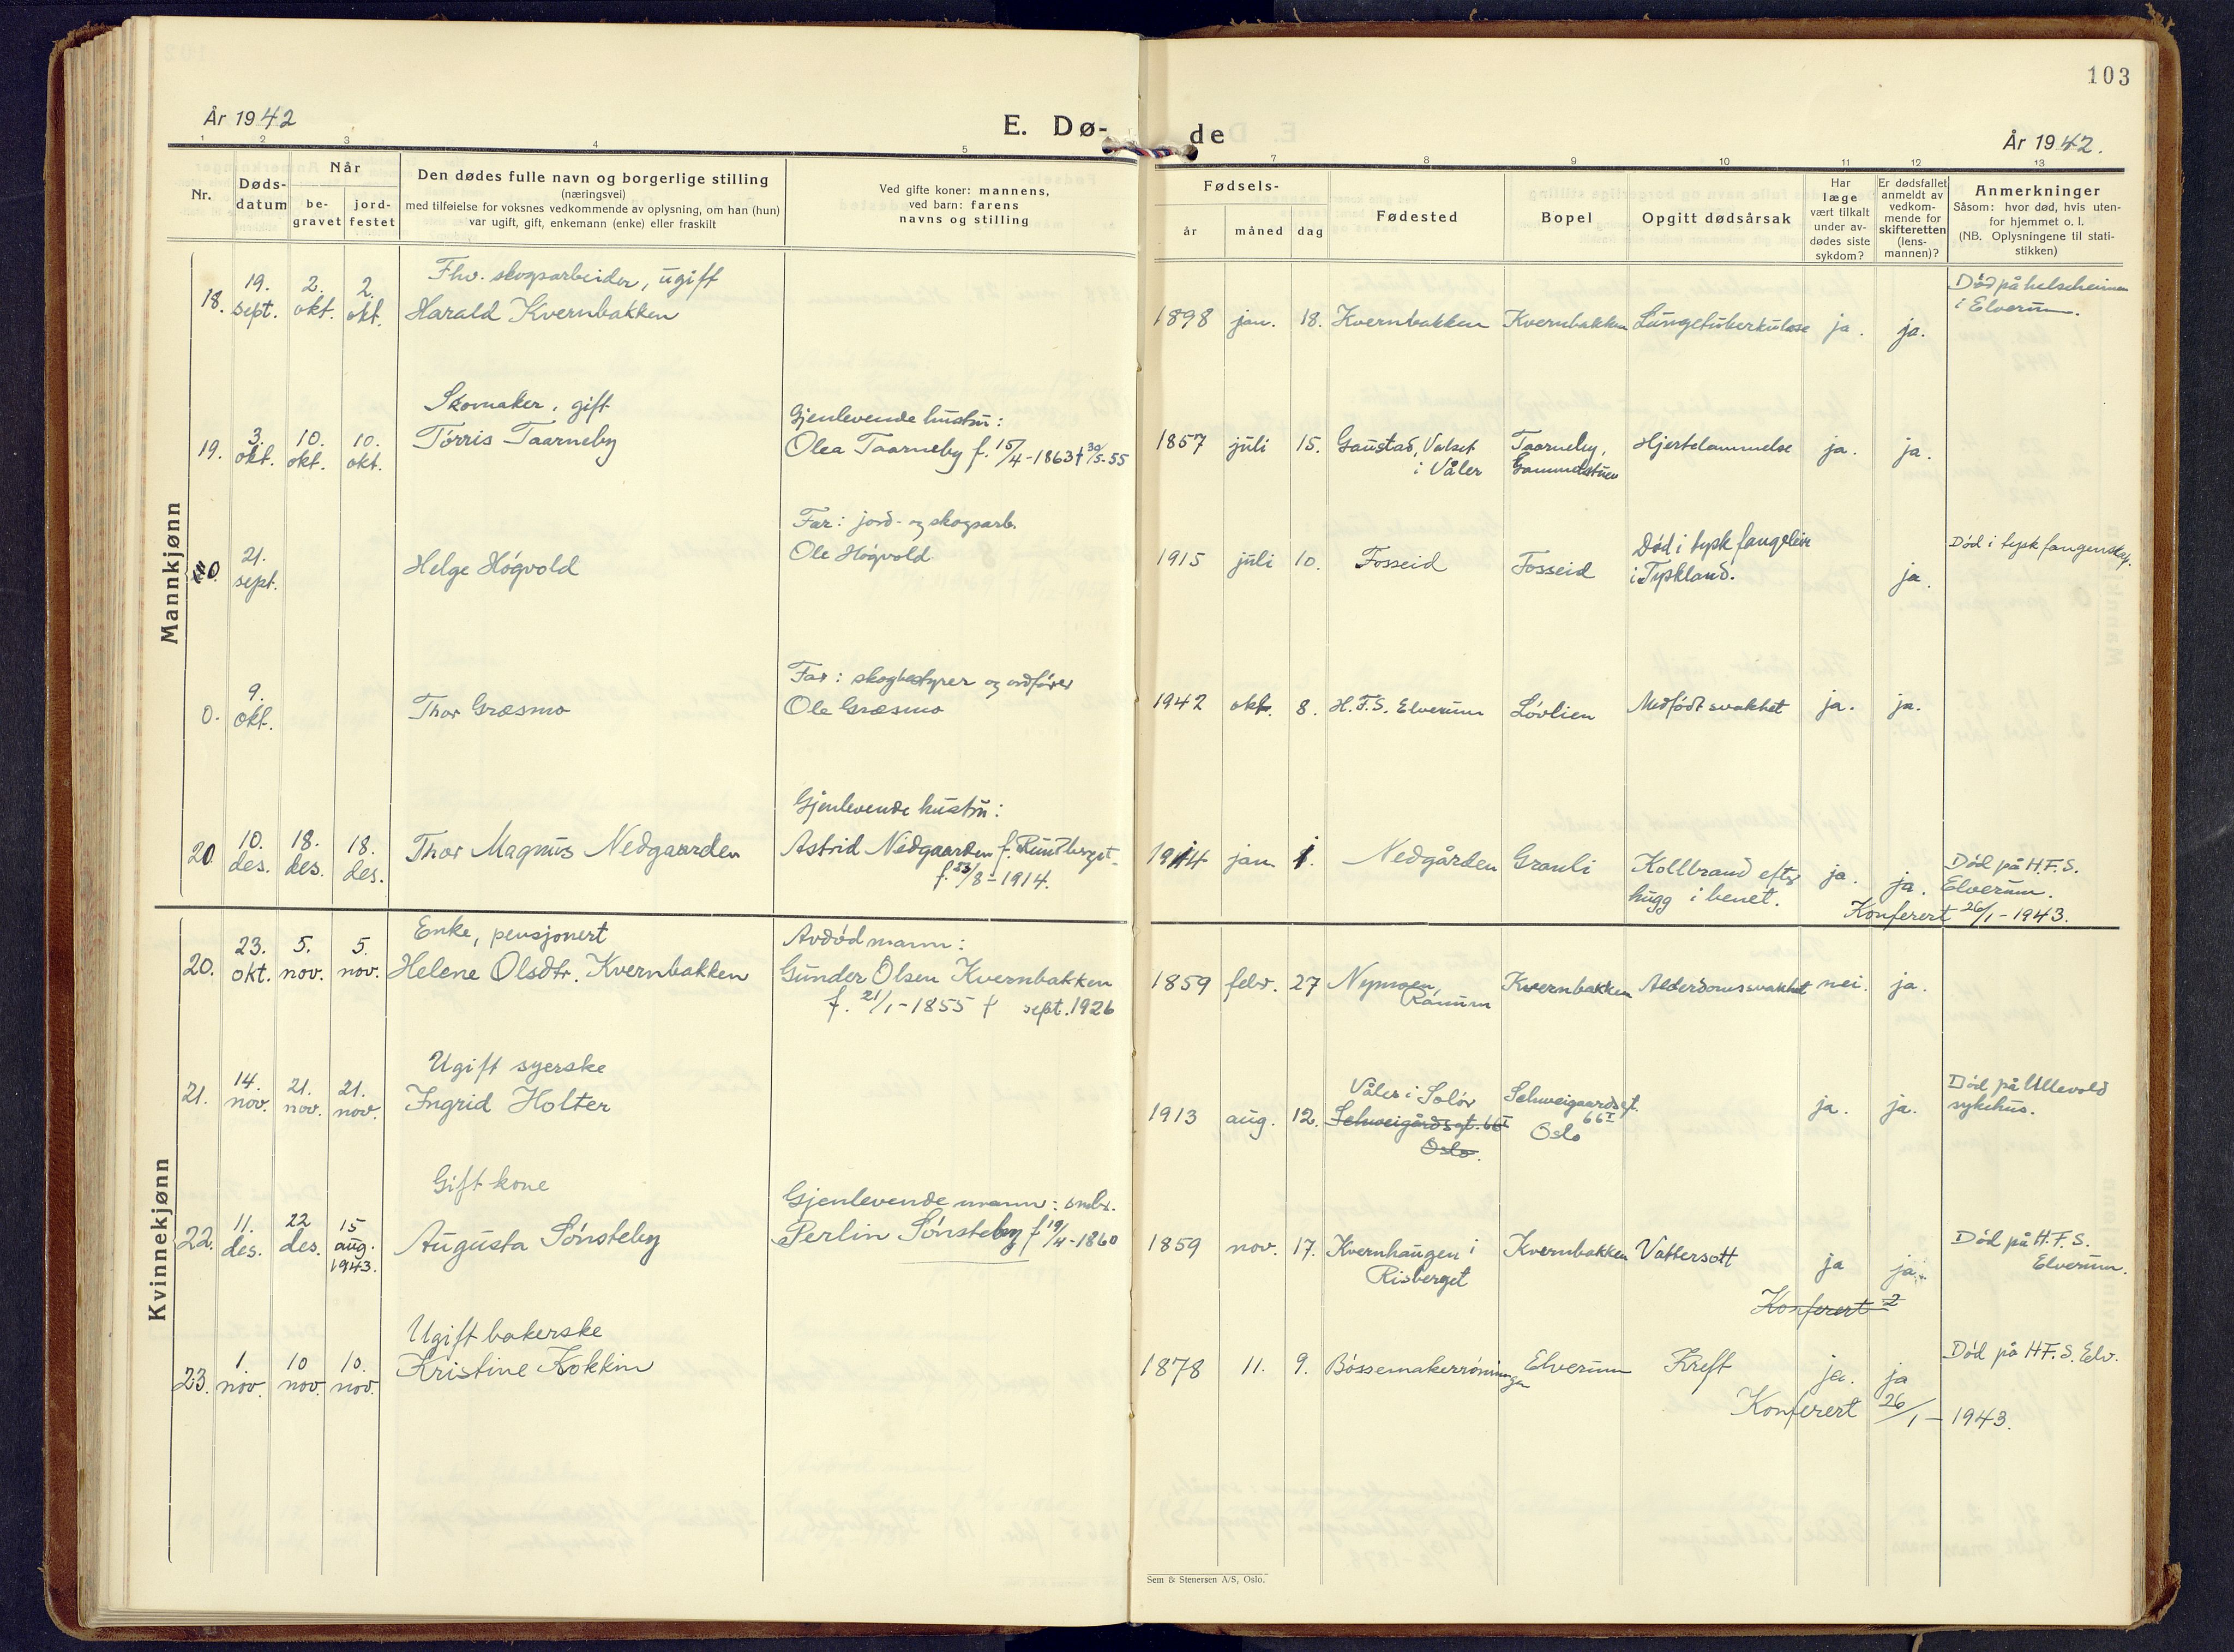 103
År 1942
E. Dø-
de
År 1942.
1 2 3 4 5 7 8 9 10 11 12 13
Nr.
Døds-
datum
Når
be-
gravet
jord-
festet
Den dødes fulle navn og borgerlige stilling
(næringsvei)
med tilføielse for voksnes vedkommende av oplysning, om han (hun)
var ugift, gift, enkemann (enke) eller fraskilt
Ved gifte koner: mannens,
ved barn: farens
navns og stilling
Fødsels-
år måned dag
Fødested
Bopel
Opgitt dødsårsak
Har
læge
vært tilkalt
under av-
dødes siste
sykdom?
Er dødsfallet
anmeldt av
vedkom-
mende for
skifteretten
(lens-
mannen)?
Anmerkninger
Såsom: hvor død, hvis uten-
for hjemmet o. l.
(NB. Oplysningene til stati-
stikken)
Mannkjønn
18.
19.
sept.
2.
okt.
2.
okt.
Fhv. skogsarbeider, ugift
Harald Kvernbakken
1898 jan. 18. Kvernbakken Kvernbakken Lungetuberkulose ja. ja.
Død på helseheimen
i Elverum.
19.
3.
okt.
10.
okt.
10.
okt.
Skomaker, gift
Tørris Taarneby
Gjenlevende hustru:
Olea Taarneby f. 15/4-1863 † 30/5-55
1857 juli 15.
Gaustad, Vulset
i Våler
Taarneby,
Gammelstuen
Hjertelammelse ja. ja.
0.
21.
sept.
Helge Høgvold
Far: jord- og skogsarb.
Ole Høgvold
1915 juli 10. Fosseid Fosseid
Død i tysk fangeleir
i Tyskland.
ja.
Død i tysk fangenskap.
0.
9.
okt.
Thor Græsmo
Far: skogbestyrer og ordfører
Ole Græsmo
1942 okt. 8. H.F.S. Elverum Løvlien Medfødt svakhet ja. ja.
20
10.
des.
18.
des.
18.
des.
Thor Magnus Nedgaarden
Gjenlevende hustru:
Astrid Nedgaarden f.
f. 23/8-1914.
1914 jan. 1. Nedgården Granli
Kollbrand efter
hugg i benet.
ja. ja.
Død på H.F.S.
Elverum.
Konferert 26/1-1943.
Kvinnekjønn
20.
23.
okt.
5.
nov.
5.
nov.
Enke, pensjonert
Helene Olsdtr. Kvernbakken
Avdød mann:
Gunder Olsen Kvernbakken
f. 21/1-1855 † sept. 1926
1859 febr. 27
Nymoen,
Ranum
Kvernbakken Alderdomssvakhet nei. ja.
21.
14.
nov.
21.
nov.
21.
nov.
Ugift syerske
Ingrid Holter
1913 aug. 12.
Våler i Solør
Schweigårdsgt. 66 I
Oslo.
Schweigaardsgt.
66 I
Oslo
ja. ja.
Død på Ullevold
sykehus.
22.
11.
des.
22
des.
15
aug.
1943.
Gift kone
Augusta Sønsteby
Gjenlevende mann: småbr.
Perlin Sønsteby f. 19/4-1860
1859 nov. 17.
Kvernhaugen i
Risberget
Kvernbakken Vattersott ja ja.
Død på H.F.S.
Elverum.
Konferert 2
23.
1.
nov.
10
nov.
10.
nov.
Ugift bakerske
Kristine Kokkin
1878 11. 9. Bøssemakerrønningen Elverum Kreft ja. ja
Død på H.F.S. Elv.
Konferert 26/1-1943.
Sem & Stenersen A/S, Oslo.